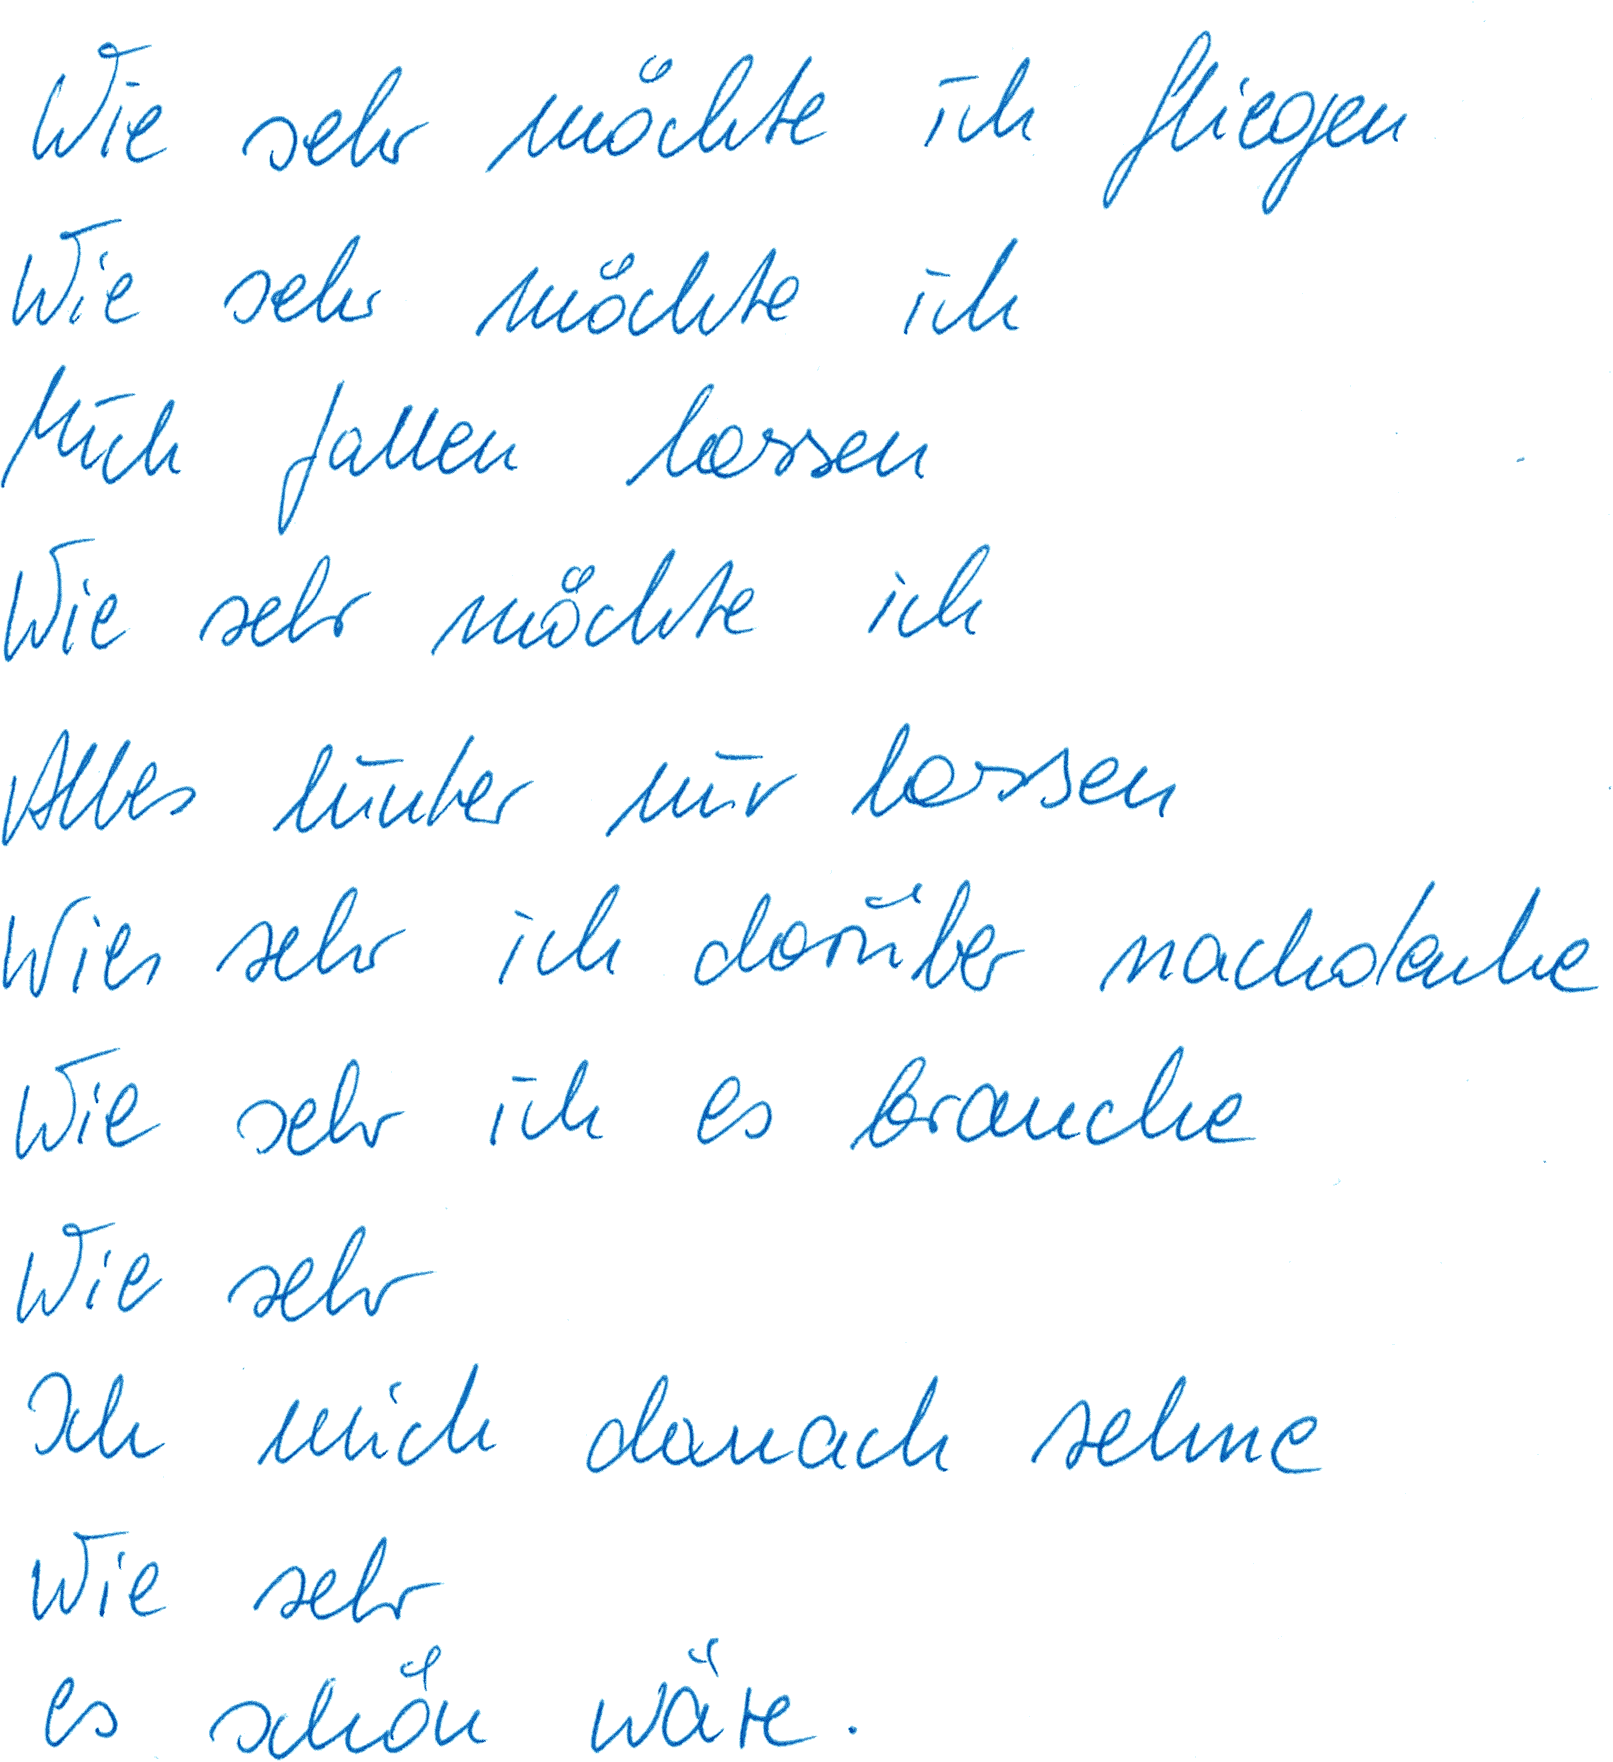 Wie sehr möchte ich fliegen
Wie sehr möchte ich
Mich fallen lassen
Wie sehr möchte ich
Alles hinter mir lassen
Wie sehr ich darüber nachdenke
Wie sehr ich es brauche
Wie sehr
Ich mich danach sehne
Wie sehr
es schön wäre.